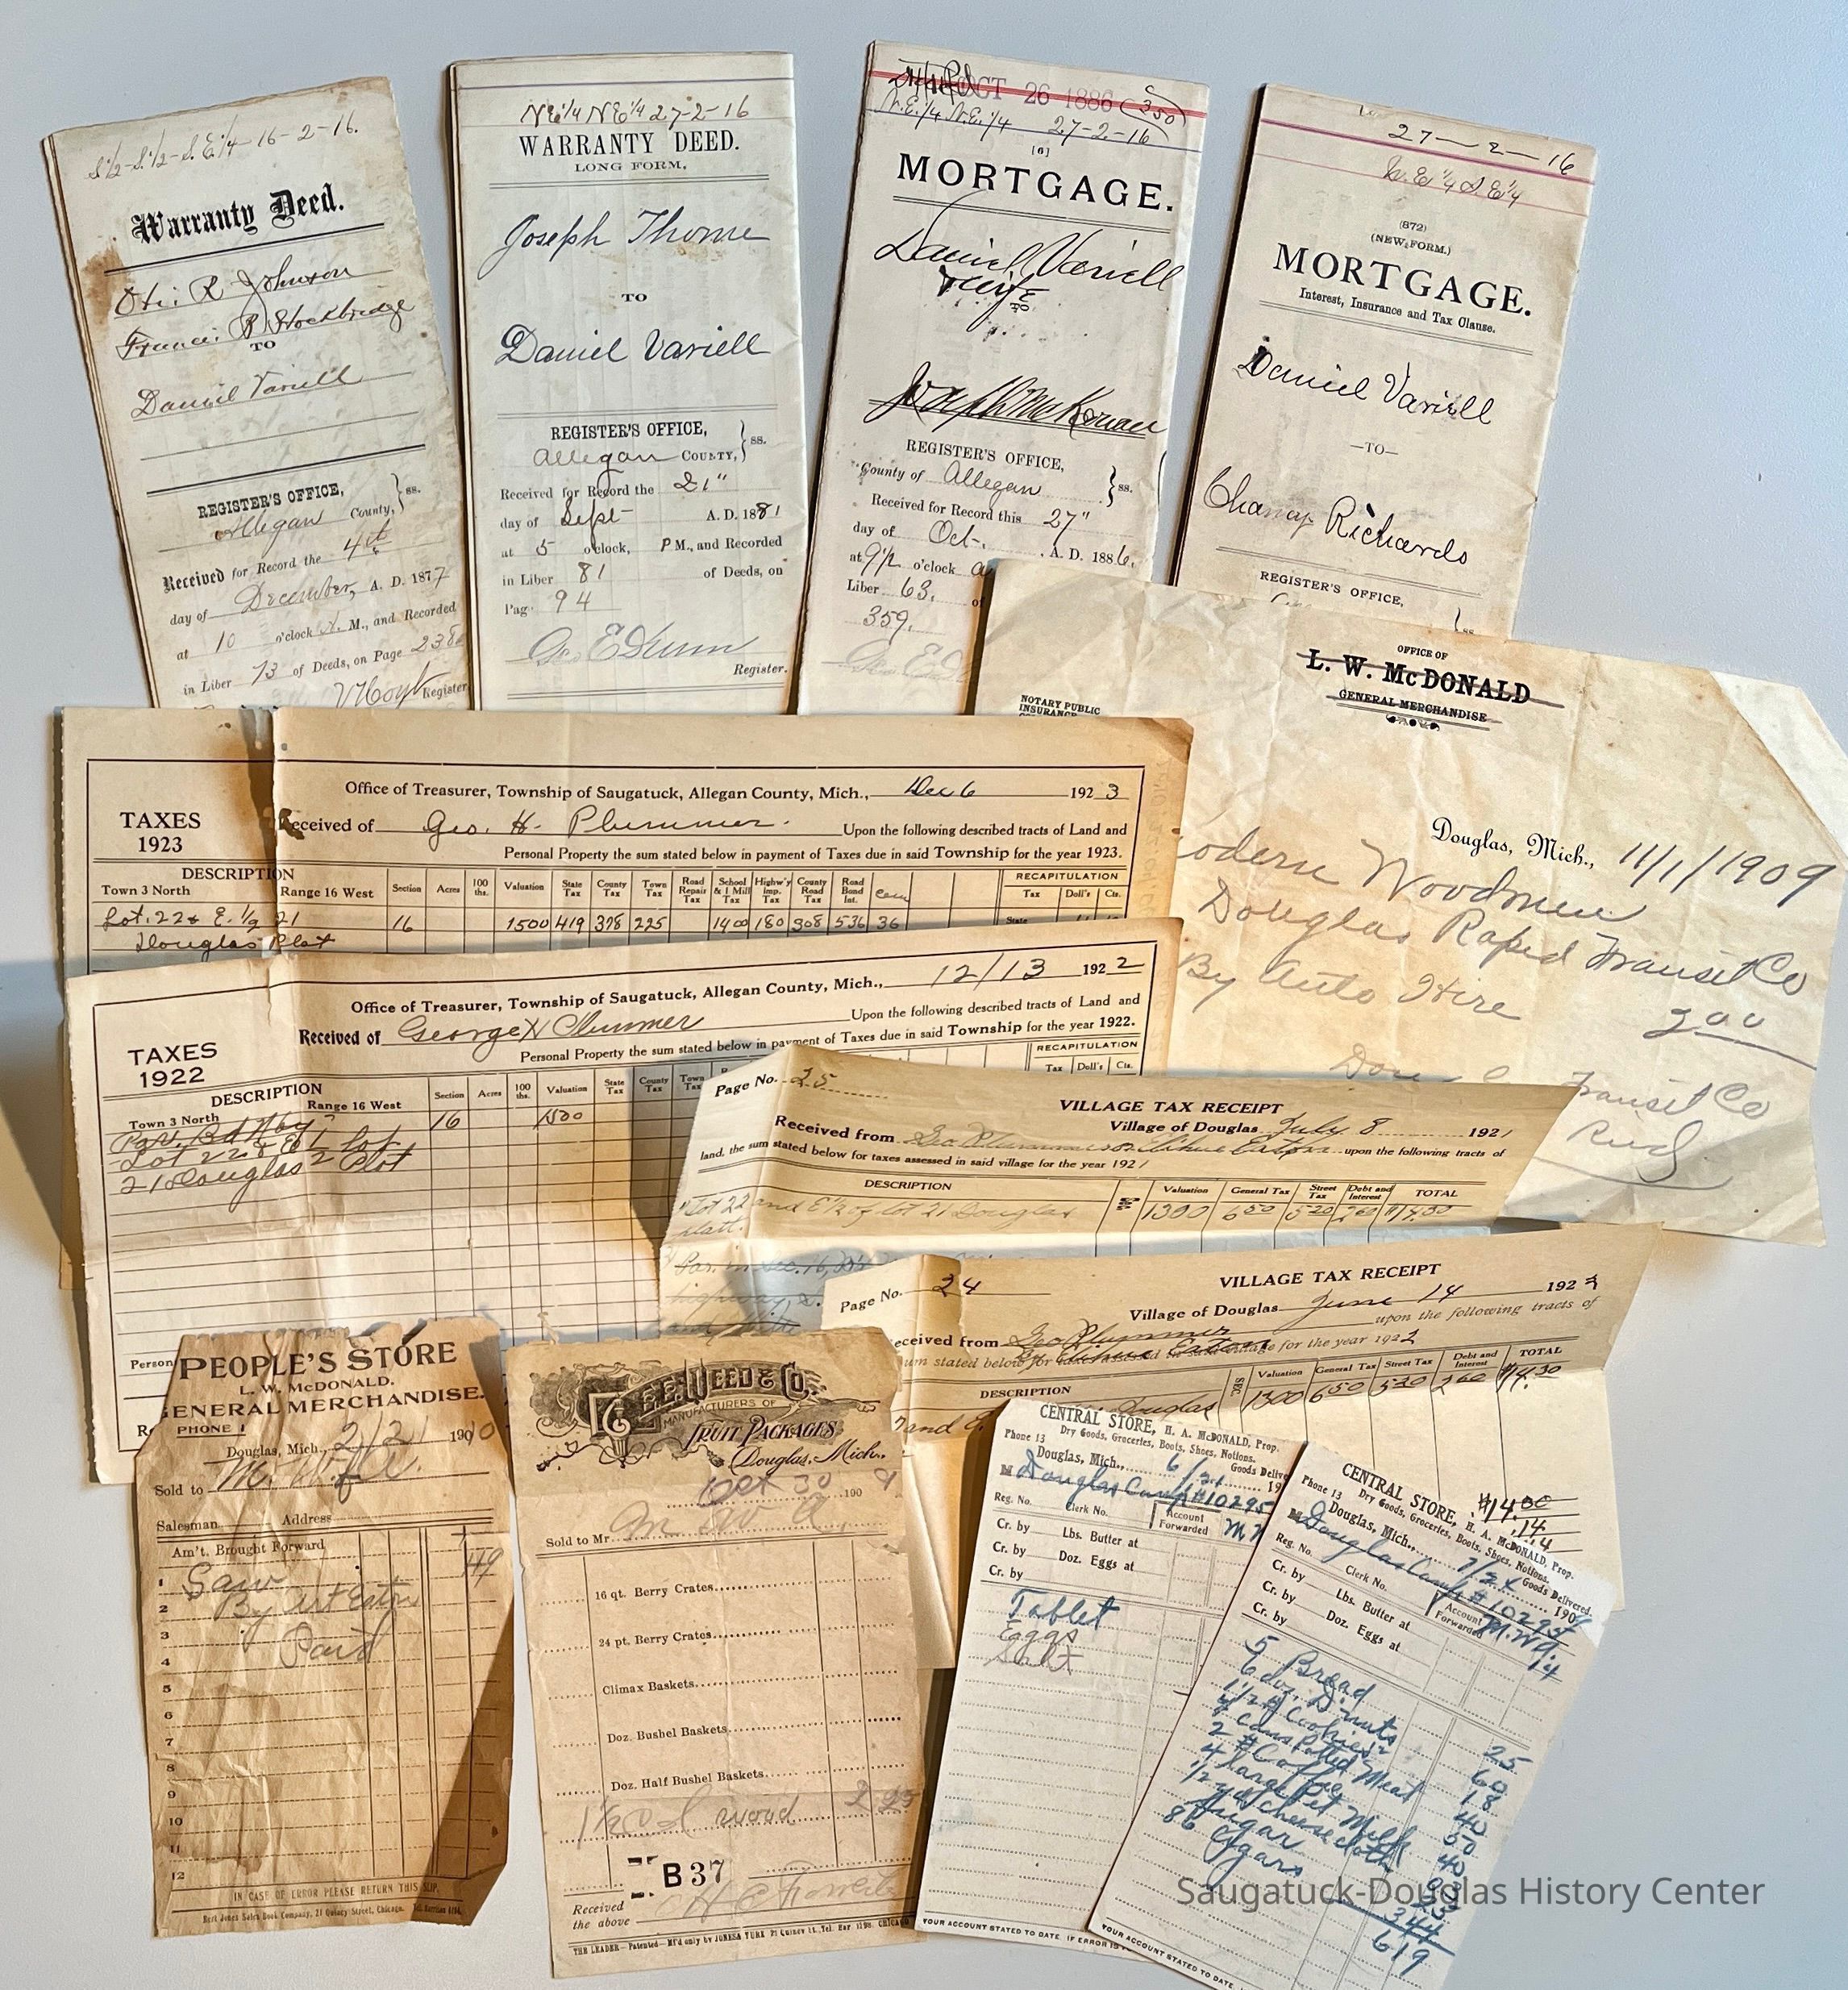 S.1/2-S.1/2-S.E.1/4-16-2-16.
Warranty Deed.
Otis R Johnson
Francis B Stockbridge
TO
Daniel Variell
REGISTER'S OFFICE,
Allegan County, } ss.
Received for Record the 4th
day of December, A. D. 1877
at 10 o'clock A. M., and Recorded
in Liber 13 of Deeds, on Page 238
Register
NE1/4 NE1/4 27-2-16
WARRANTY DEED.
LONG FORM.
Joseph Thome
TO
Daniel Variell
REGISTER'S OFFICE,
Allegan COUNTY, } ss.
Received for Record the 21"
day of Sept A. D. 1881
at 5 o'clock, P M., and Recorded
in Liber 81 of Deeds, on
Page 94
Geo E Dunn
Register.
OCT 26 1886 350
N.E.1/4 N.E.1/4 27-2-16
[6]
MORTGAGE.
Daniel Variell
& wife
TO
Joseph McKowan
REGISTER'S OFFICE,
County of Allegan } ss.
Received for Record this 27"
day of Oct. A. D. 1886.
at 9 1/2 o'clock a
Liber 63. of
359.
Geo E D
27-2-16
N.E 1/4 S.E 1/4
(872)
(NEW FORM.)
MORTGAGE.
Interest, Insurance and Tax Clause.
Daniel Variell
—TO—
Chancy Richards
REGISTER'S OFFICE,
ss.
OFFICE OF
L. W. McDONALD
GENERAL MERCHANDISE
NOTARY PUBLIC
INSURANCE
Douglas, Mich., 11/1/1909
odern Woodmen
Douglas Rapid Transit Co
By Auto Hire
200
Transit Co
TAXES
1923
Office of Treasurer, Township of Saugatuck, Allegan County, Mich., Dec 6 1923
Received of Geo. H. Plummer. Upon the following described tracts of Land and
Personal Property the sum stated below in payment of Taxes due in said Township for the year 1923.
DESCRIPTION
Town 3 North Range 16 West Section Acres 100 ths. Valuation State Tax County Tax Town Tax Road Repair Tax School & 1 Mill Tax Highw'y Imp. Tax County Road Tax Road Bond Int. RECAPITULATION Tax Doll's Cts.
Lot. 22 & E. 1/2 21 16 1500 419 378 225 1400 180 308 536 36 State
Douglas Plat
TAXES
1922
Office of Treasurer, Township of Saugatuck, Allegan County, Mich., 12/13 1922
Received of George H Plummer Upon the following described tracts of Land and
Personal Property the sum stated below in payment of Taxes due in said Township for the year 1922.
DESCRIPTION
Town 3 North Range 16 West Section Acres 100 ths. Valuation State Tax County Tax Town RECAPITULATION Tax Doll's Cts.
16 1500
Lot 22 & E 1/2 Lot
21 Douglas Plot
Person
Page No. 25
VILLAGE TAX RECEIPT
Village of Douglas July 8 1921
Received from Geo Plummer or Elihue Eaton upon the following tracts of
land, the sum stated below for taxes assessed in said village for the year 1921
DESCRIPTION Valuation General Tax Street Tax Debt and Interest TOTAL
Lot 22 and E 1/2 of lot 21 Douglas 1300 650 520 260 $14.30
platt.
Par. in sec. 16,
highway
Page No. 24
VILLAGE TAX RECEIPT
Village of Douglas June 14 192
upon the following tracts of
eceived from Geo Plummer
or Elihue Eaton
um stated below for
for the year 1922
DESCRIPTION SEC. Valuation General Tax Street Tax Debt and Interest TOTAL
and Douglas 1300 650 520 260 $14.30
$14.00
.14
14.14
PEOPLE'S STORE
L. W. McDONALD.
GENERAL MERCHANDISE.
PHONE 1
Douglas, Mich., 2/21 1900
Sold to M. W. of A.
Salesman Address
Am't. Brought Forward
1 Saw 49
2 By Art Eaton
3
4 Paid
5
6
7
8
9
10
11
12
IN CASE OF ERROR PLEASE RETURN THIS SLIP.
WEED & CO.
MANUFACTURERS OF
FRUIT PACKAGES
Douglas, Mich.,
Oct 30 1909
Sold to Mr M W A.
16 qt. Berry Crates
24 pt. Berry Crates
Climax Baskets
Doz. Bushel Baskets
Doz. Half Bushel Baskets
1 1/2 Cd wood 2 25
B 37
Received
the above
CENTRAL STORE, H. A. McDONALD, Prop.
Dry Goods, Groceries, Boots, Shoes, Notions.
Phone 13 Goods Delive
Douglas, Mich., 6/21 19
M Douglas Camp #10295
Reg. No. Clerk No. Account Forwarded M.
Cr. by Lbs. Butter at
Cr. by Doz. Eggs at
Cr. by
Tablet
Eggs
Salt
YOUR ACCOUNT STATED TO DATE. IF ERROR IS
CENTRAL STORE, H. A. McDONALD, Prop.
Dry Goods, Groceries, Boots, Shoes, Notions.
Phone 13 Goods Delivered.
Douglas, Mich., 7/24 190
M Douglas Camp #10295
Reg. No. Clerk No. Account Forwarded M.W.A.
Cr. by Lbs. Butter at 14
Cr. by Doz. Eggs at
Cr. by
5 Bread 25
6 doz. D. nuts 60
1 1/2 # Cookies 18
4 Cans Potted Meat 40
2 # Coffee 50
4 Large Pet Milk 40
1/2 yd cheese cloth
Sugar
86 Cigars 344
619
YOUR ACCOUNT STATED TO DATE.
Saugatuck-Douglas History Center